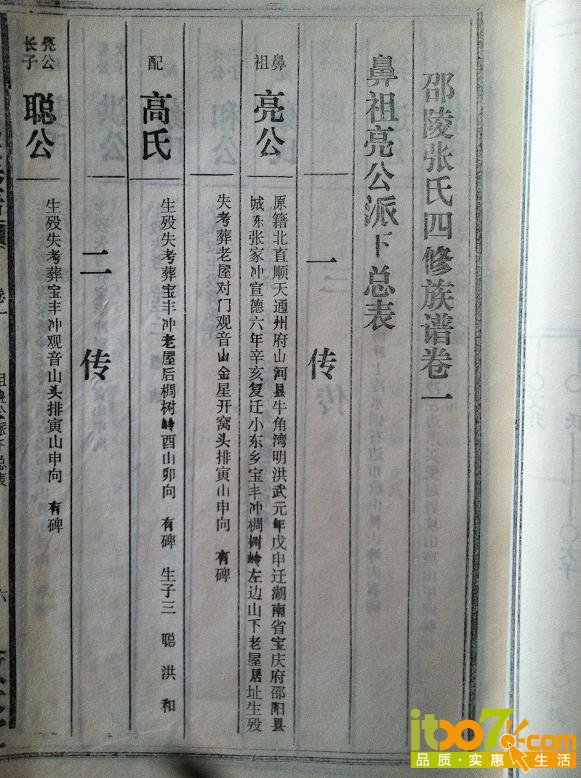 邵陵张氏四修族谱卷一
鼻祖亮公派下总表
一传
鼻祖 亮公
原籍北直顺天通州府山河县牛角湾明洪武元年戊申迁湖南省宝庆府邵阳县
城东张家冲宣德六年辛亥复迁小东乡宝丰冲椆树岭左边山下老屋居址生殁
失考葬老屋对门观音山金星开窝头排寅山申向 有碑
配 高氏
生殁失考葬宝丰冲老屋后椆树岭酉山卯向 有碑 生子三 聪 洪 和
二传
亮公长子 聪公
生殁失考葬宝丰冲观音山头排寅山申向 有碑
卷一
派下总表
六
itbo7.com
品质·实惠 生活